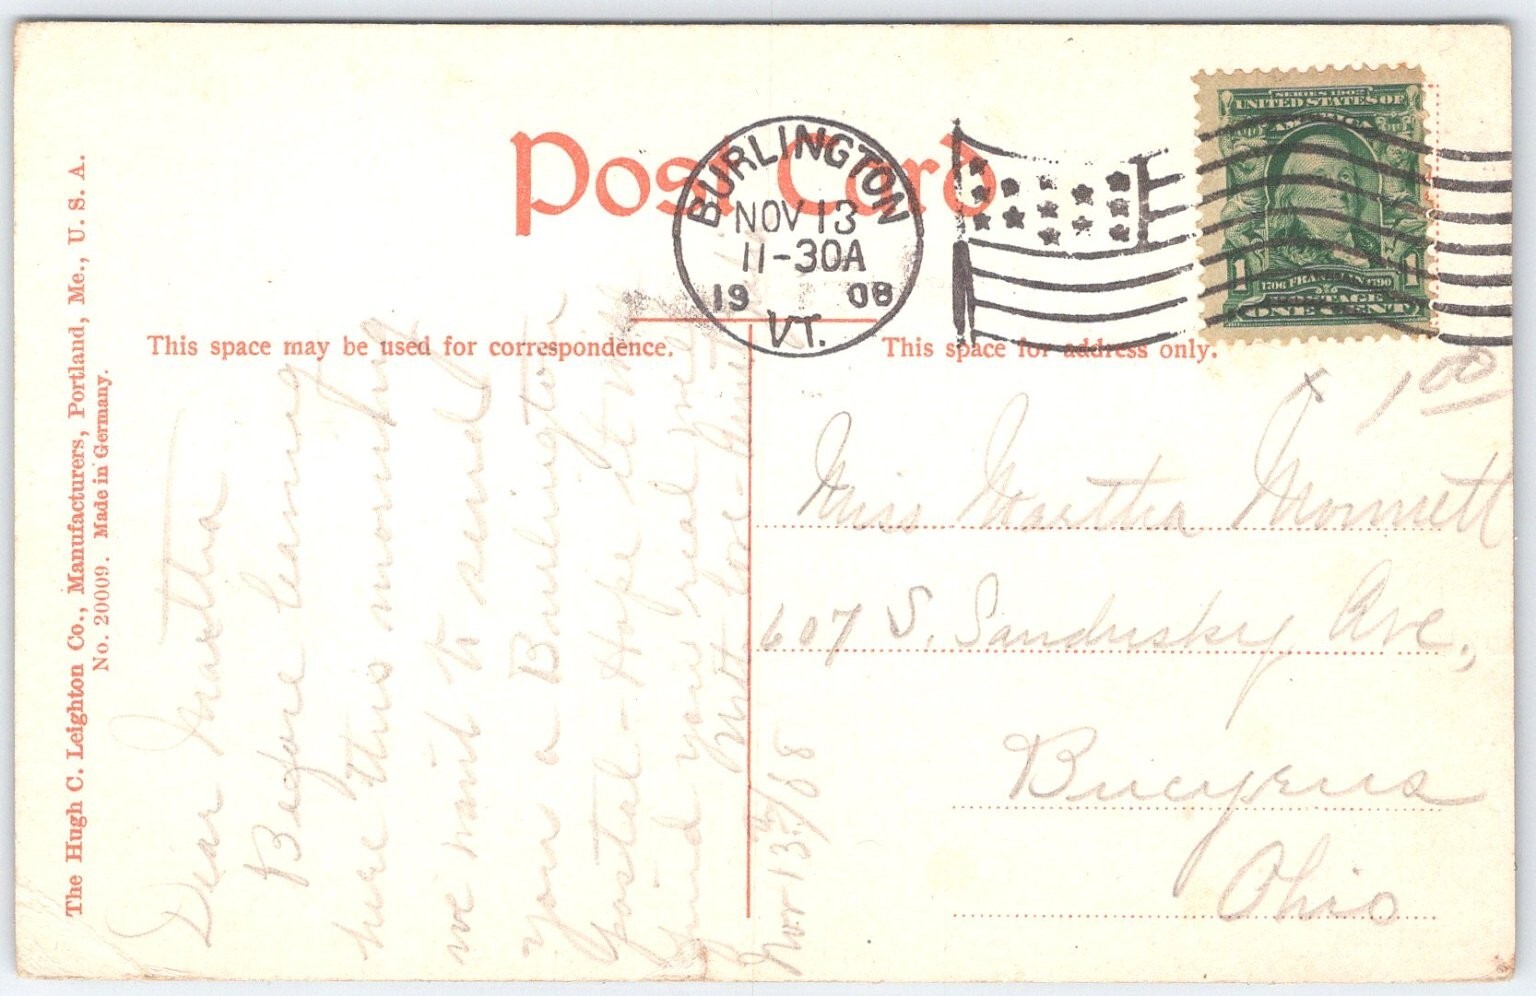 The Hugh C. Leighton Co., Manufacturers, Portland, Me., U. S. A.
No. 20009. Made in Germany.
Post Card
BURLINGTON
NOV 13
11-30A
19 08
VT.
SERIES 1902
UNITED STATES OF
AMERICA
1 1
1706 FRANKLIN 1790
POSTAGE
ONE CENT
This space may be used for correspondence.
This space for address only.
x 1 00
Dear Martha
Before leaving
here this morning
we want to send
you a Burlington
postal - Hope it will
find you real well
With love -
Nov 13th/08
Miss Martha Monnett
607 S. Sandusky Ave.,
Bucyrus
Ohio